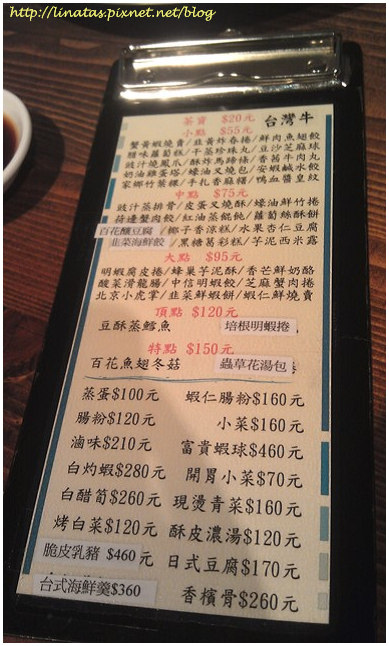 http://linatas.pixnet.net/blog
茶資 $20元 台灣牛
小點 $55元
蟹黃蝦燒賣/韭黃炸春捲/鮮肉魚翅餃
臘味蘿蔔糕/干蒸珍珠丸/豆沙芝麻球
豉汁燒鳳爪/酥炸馬蹄條/香茜牛肉丸
奶油雞蛋塔/蠔油叉燒包/安蝦鹹水餃
家鄉竹葉粿/手扎香麻糬/鴨血豐皇紋
中點 $75元
豉汁蒸排骨/皮蛋叉燒酥/蠔油鮮竹捲
荷邊蟹肉餃/紅油菜餛飩/蘿蔔絲酥餅
百花釀豆腐/椰子香涼糕/水果杏仁豆腐
韭菜海鮮餃/黑糖葛彩糕/芋泥西米露
大點 $95元
明蝦腐皮捲/蜂巢芋泥酥/香芒鮮奶酪
酸菜滑龍腸/中信明蝦餃/芝麻蟹肉捲
北京小虎掌/韭菜鮮蝦餅/蝦仁鮮燒賣
頂點 $120元
豆酥蒸鱈魚 培根明蝦捲
特點 $150元
百花魚翅冬菇 蟲草花湯包
蒸蛋$100元 蝦仁腸粉$160元
腸粉$120元 小菜$160元
滷味$210元 富貴蝦球$460元
白灼蝦$280元 開胃小菜$70元
白醋筍$260元 現燙青菜$160元
烤白菜$120元 酥皮濃湯$120元
脆皮乳豬 $460元 日式豆腐$170元
台式海鮮羹$360 香檳骨$260元